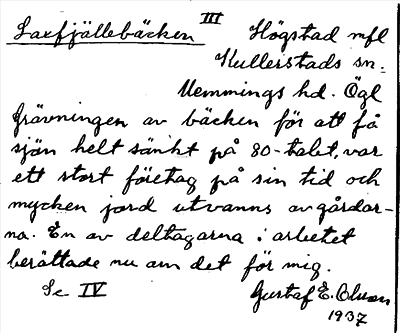 Laxfjällebäcken III Högstad mfl
Kullerstads sn.
Memmings hd. Ögl
Grävningen av bäcken för att få
sjön helt sänkt på 80-talet, var
ett stort företag på sin tid och
mycken jord utvanns av gårdar-
na. En av deltagarna i arbetet
berättade nu om det för mig.
Se IV Gustaf E. Olsson
1937